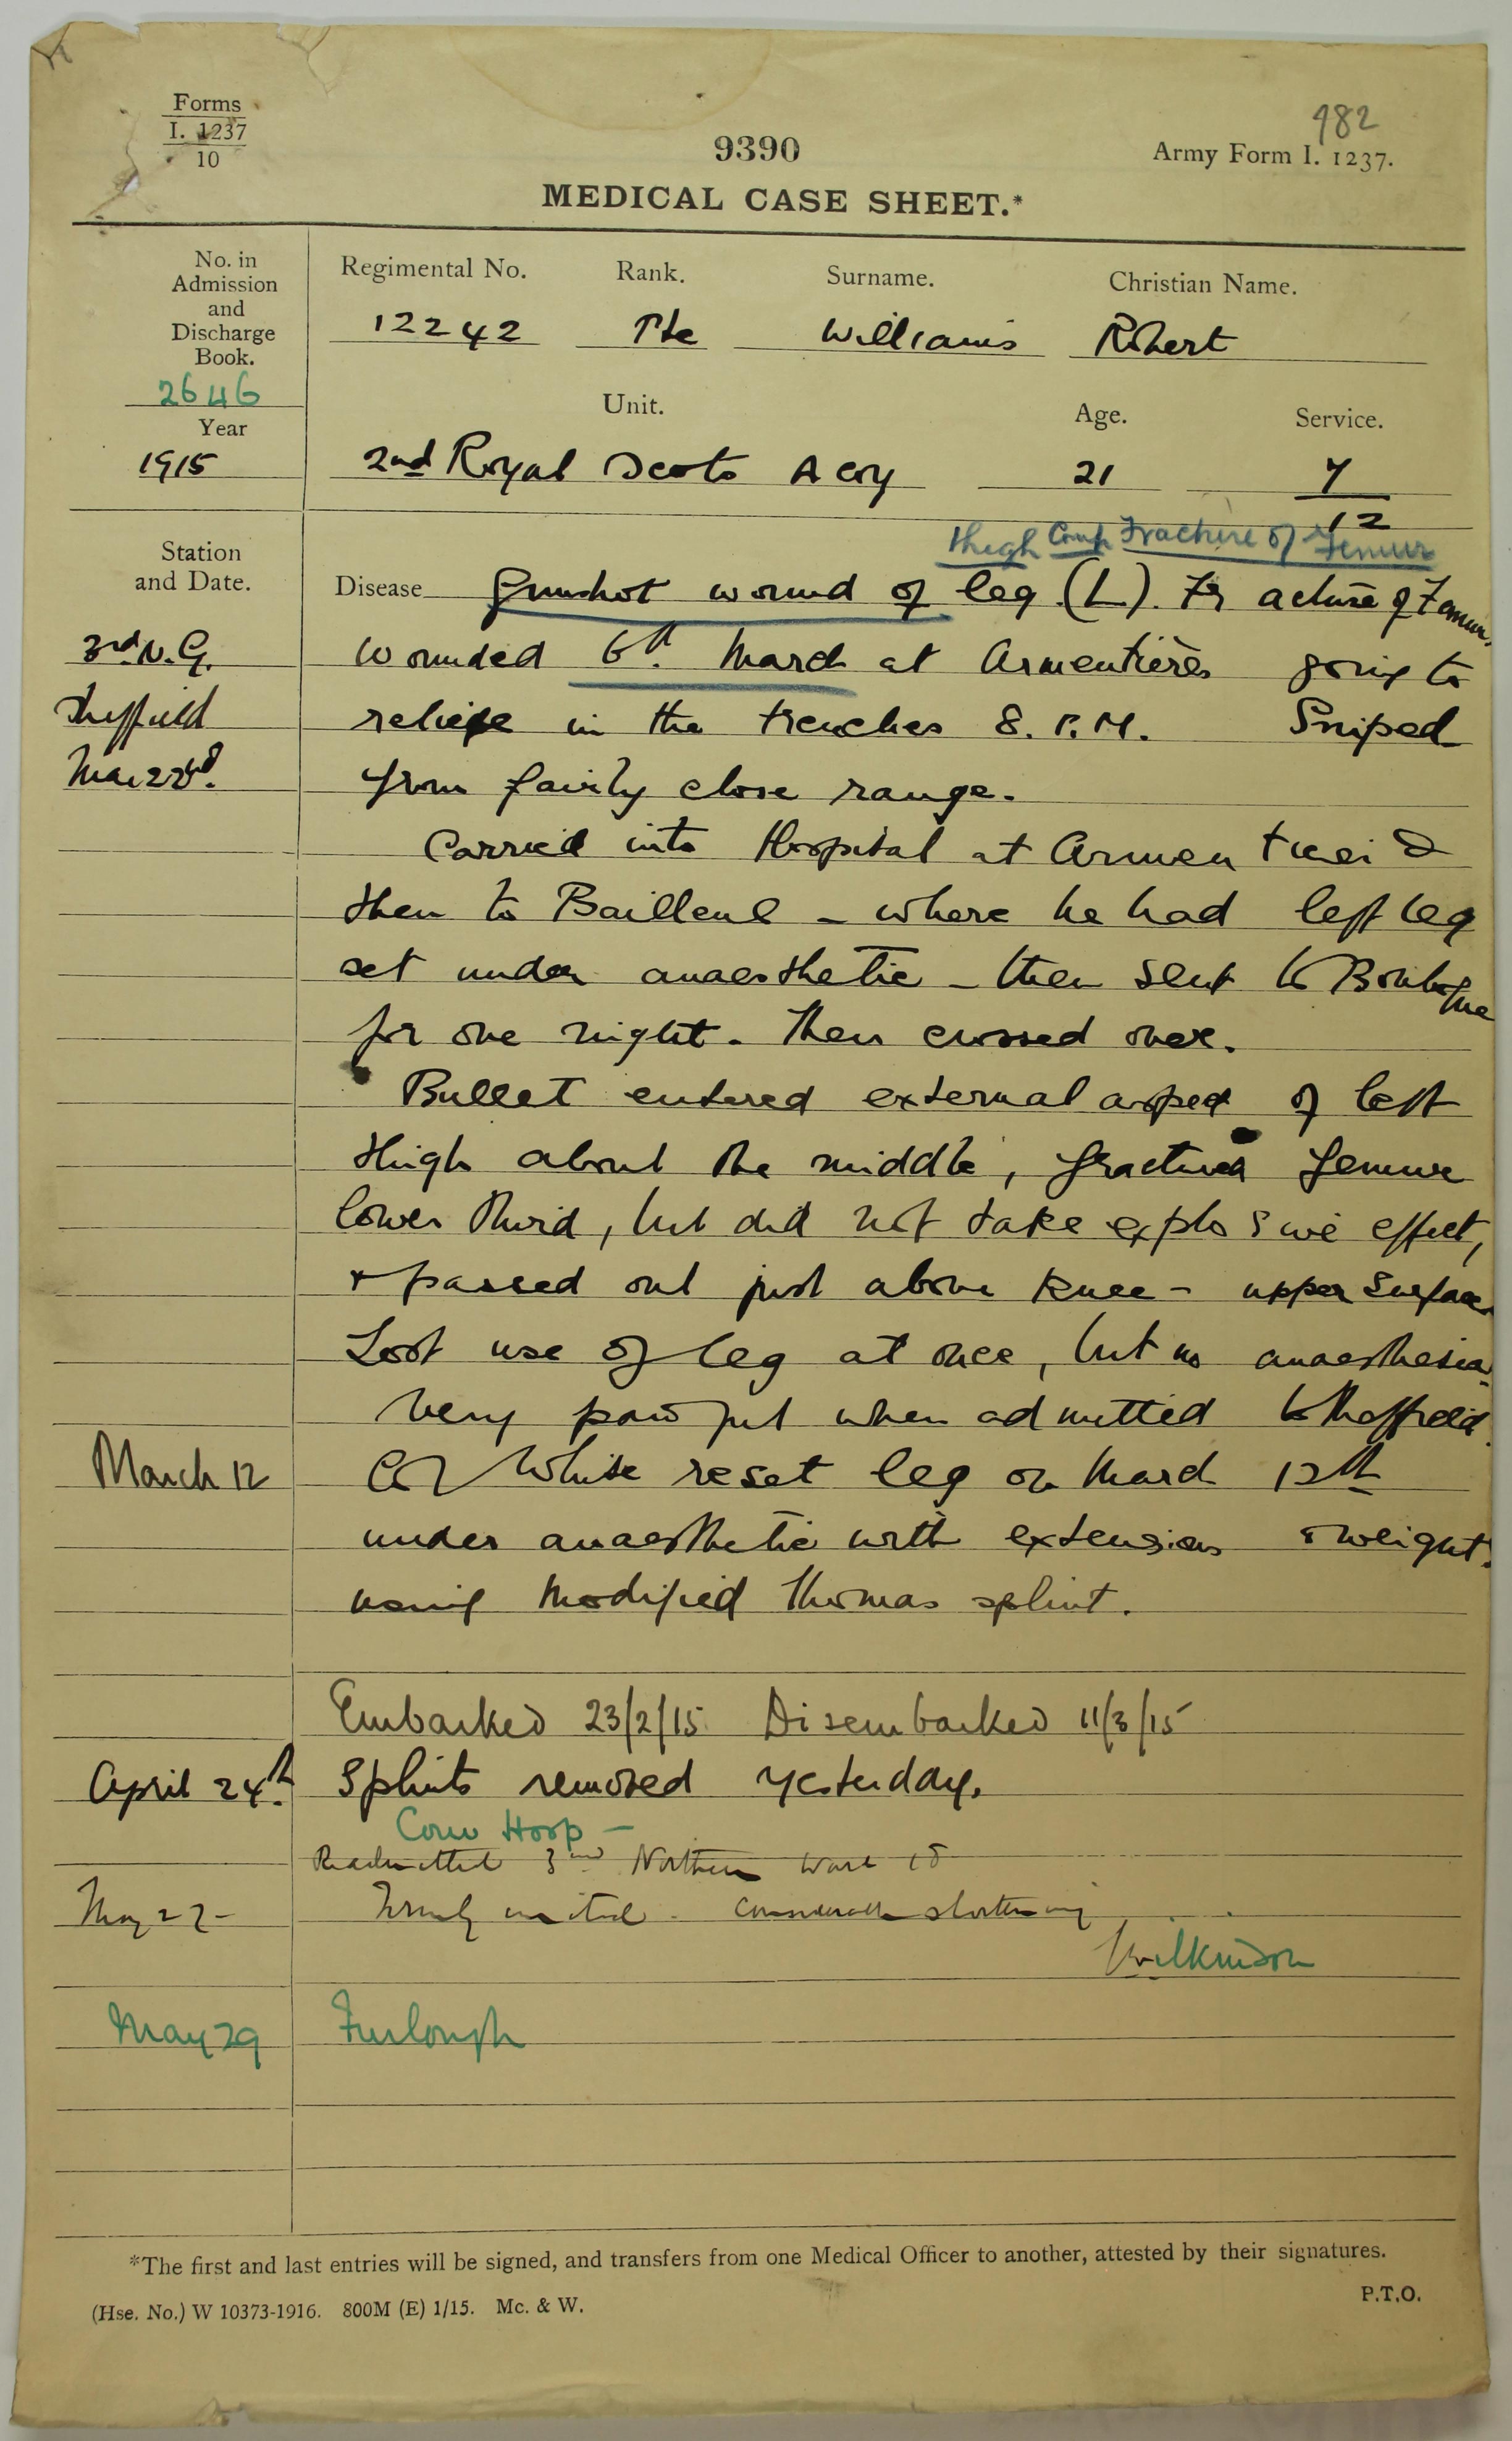 Forms
I. 1237
10
982
9390
Army Form I. 1237.
MEDICAL CASE SHEET.*
No. in
Admission
and
Discharge
Book.
2646
Year
1915
Regimental No. Rank. Surname. Christian Name.
12242 Pte Williams Robert
Unit. Age. Service.
2nd Royal Scots A coy 21 7/12
Station
and Date.
Thigh Comp Fracture of Femur
Disease Gunshot wound of leg (L). Fracture of Femur.
3rd N. G. wounded 6th March at Armentières going to
Sheffield reliefe in the trenches 8. P.M. Sniped
Mar 23rd. from fairly close range.
Carried into Hospital at Armen
then to Bailleul - where he had left leg
set under anaesthetic - then sent to Boulogne
for one night. Then crossed over.
Bullet entered external aspect of left
thigh about the middle, fractured femur
lower third, but did not take explosive effect,
+ passed out just above knee - upper surface
Lost use of leg at once, but no anaesthesia.
Very painful when admitted to Sheffield.
March 12 Col White reset leg on March 12th
under anaesthetic with extension & weight.
using modified Thomas splint.
Embarked 23/2/15 Disembarked 11/3/15
April 24th. Splints removed yesterday.
Conv Hosp -
Readmitted 3rd Northern Ward 18
May 27 - Firmly united - considerable shortening
Wilkinson
May 29 Furlough
*The first and last entries will be signed, and transfers from one Medical Officer to another, attested by their signatures.
P.T.O.
(Hse. No.) W 10373-1916. 800M (E) 1/15. Mc. & W.